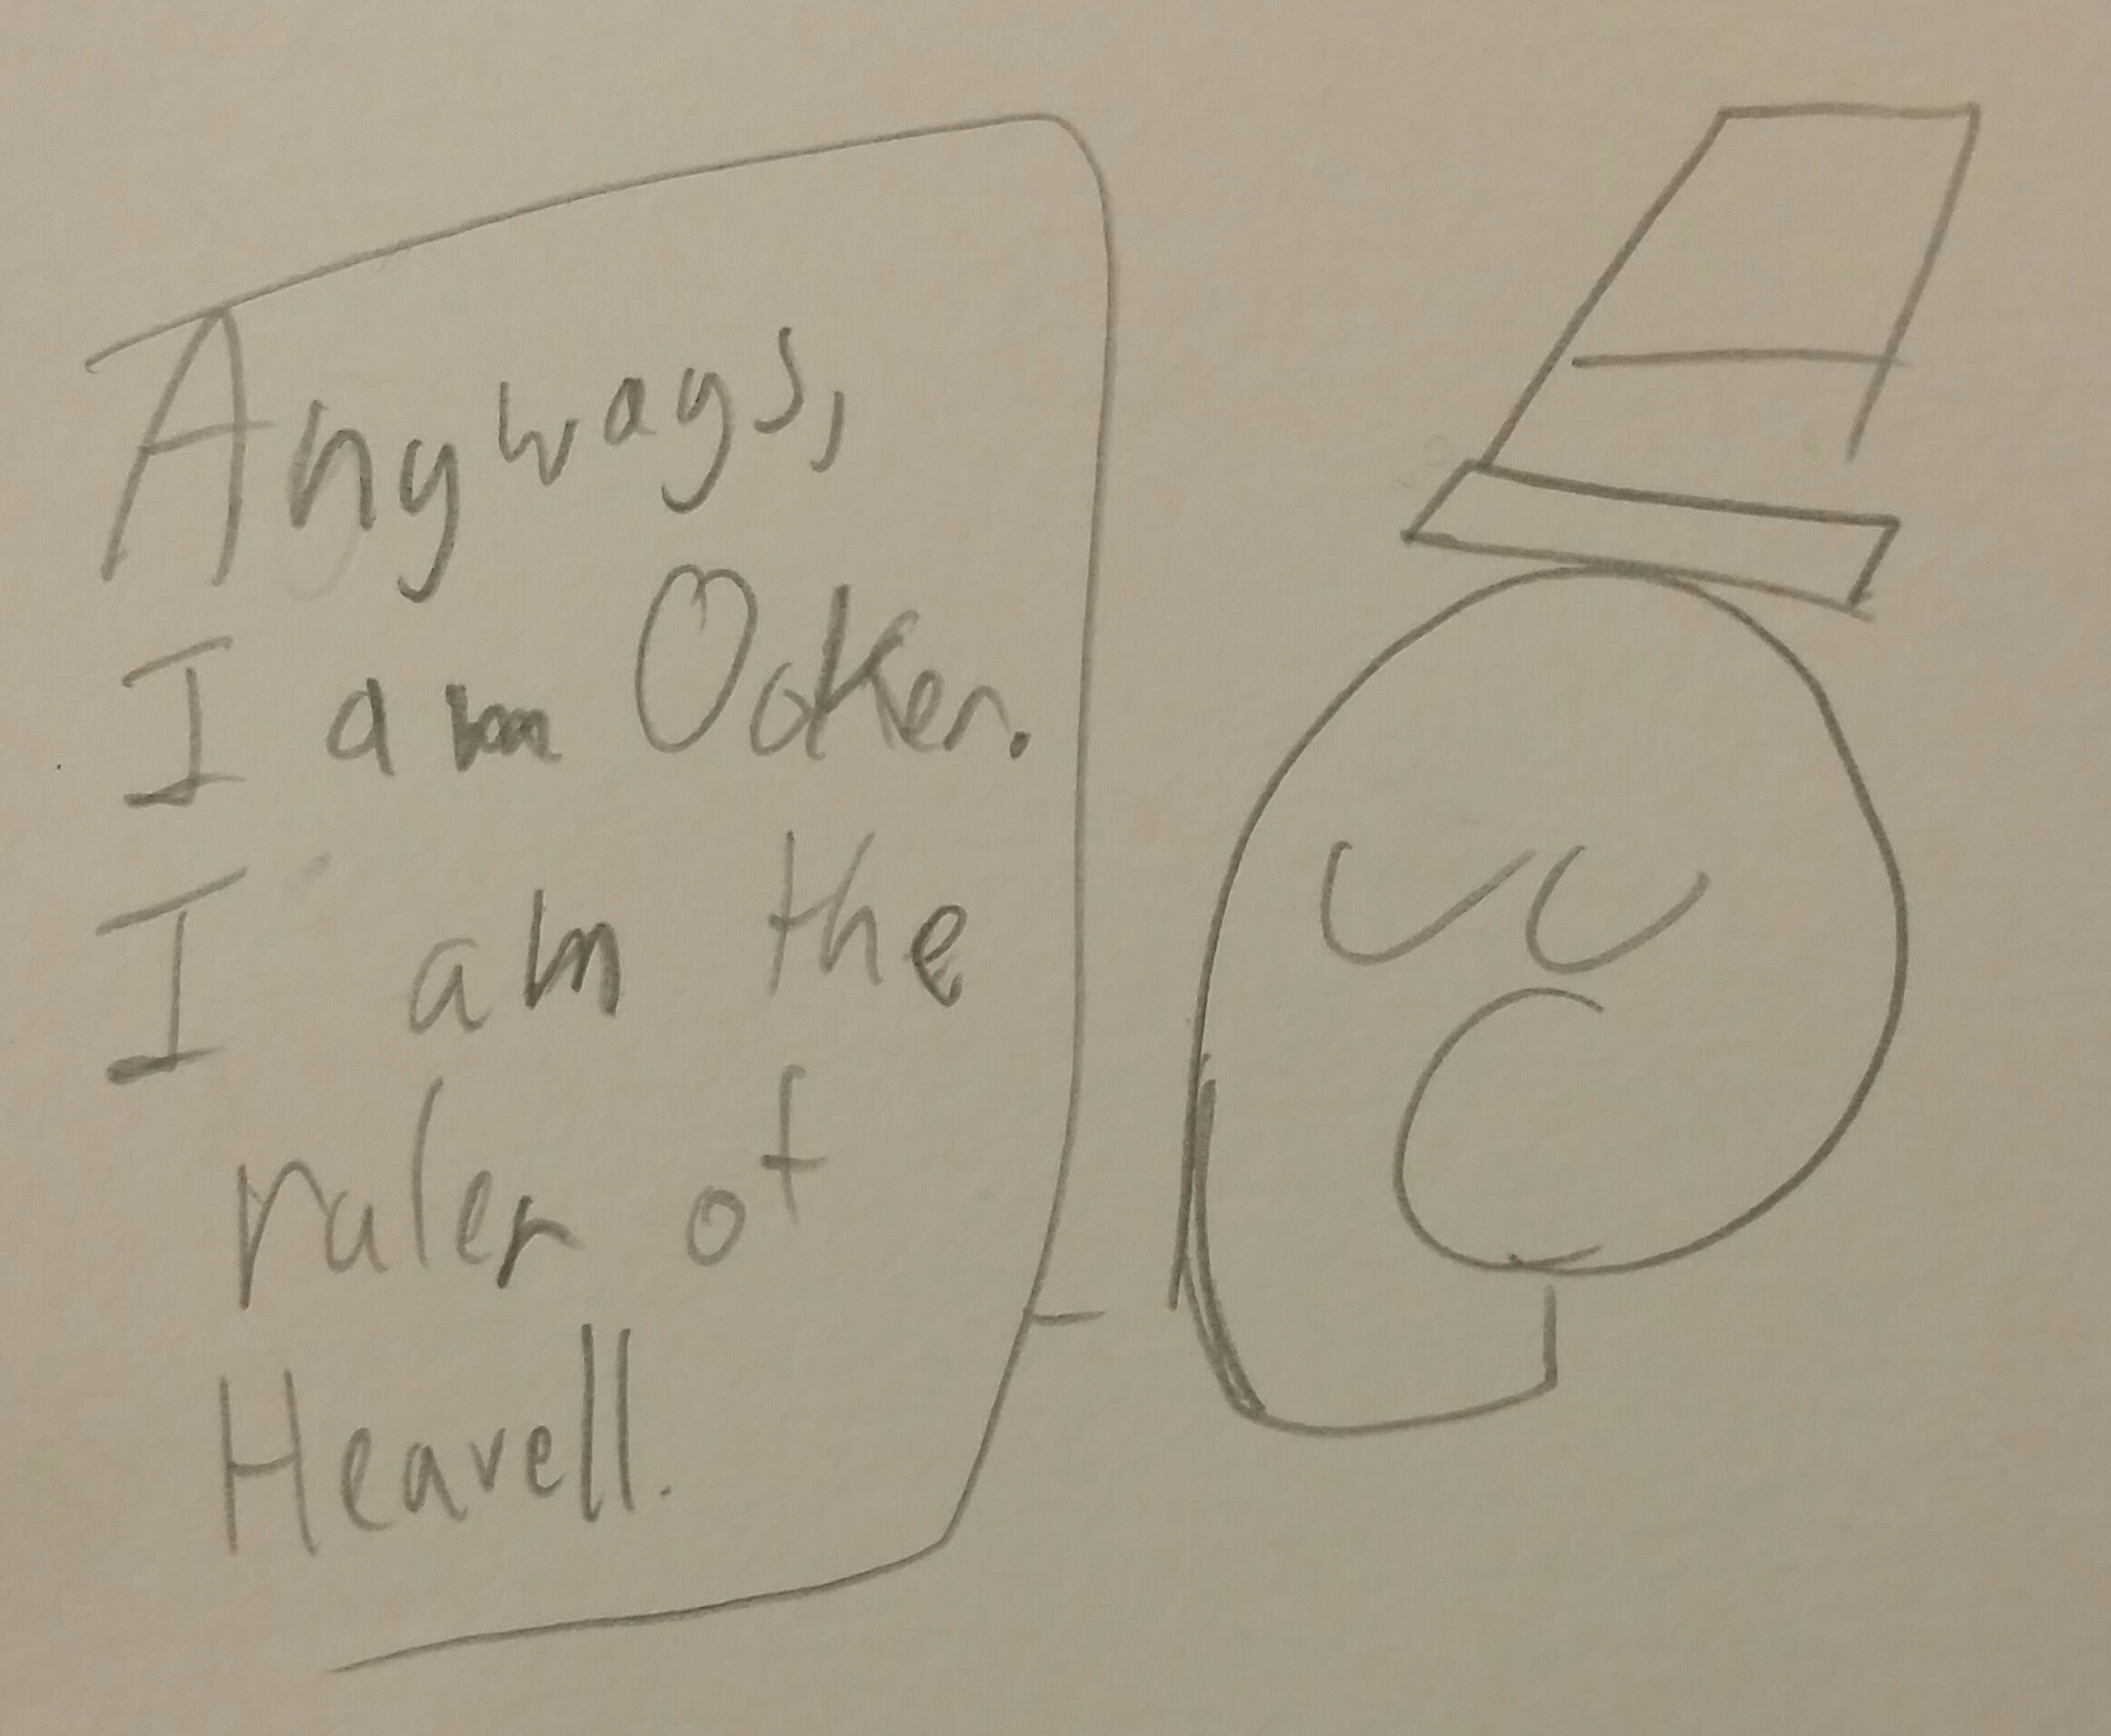 Anyways,
I am Ooker.
I am the
ruler of
Heavell.